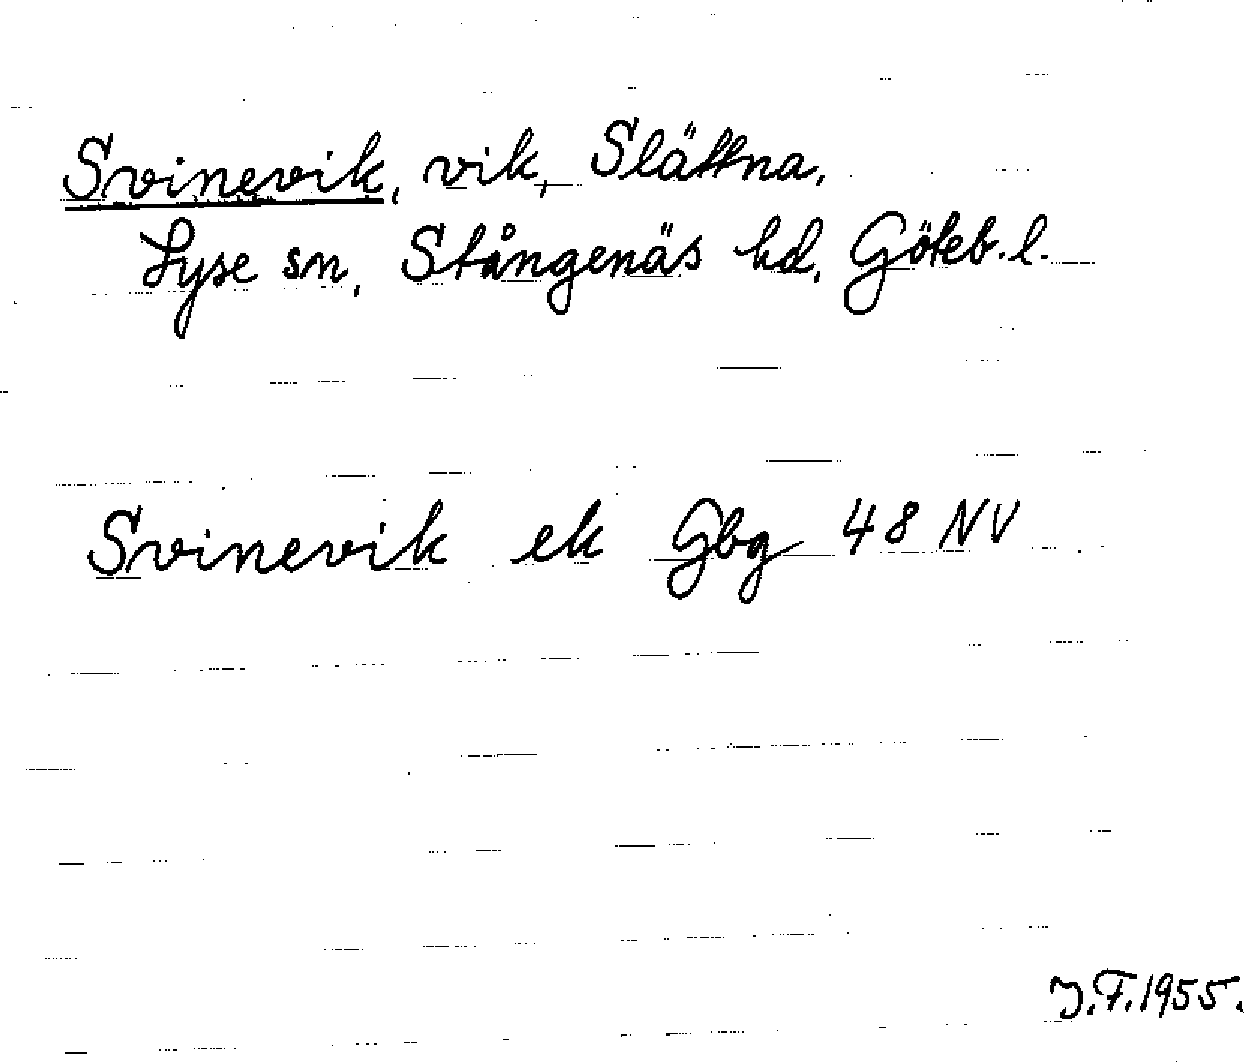 Svinevik, vik, Slättna,
Lyse sn, Stångenäs hd, Göteb. l.
Svinevik ek Gbg 48 NV
J.F. 1955.